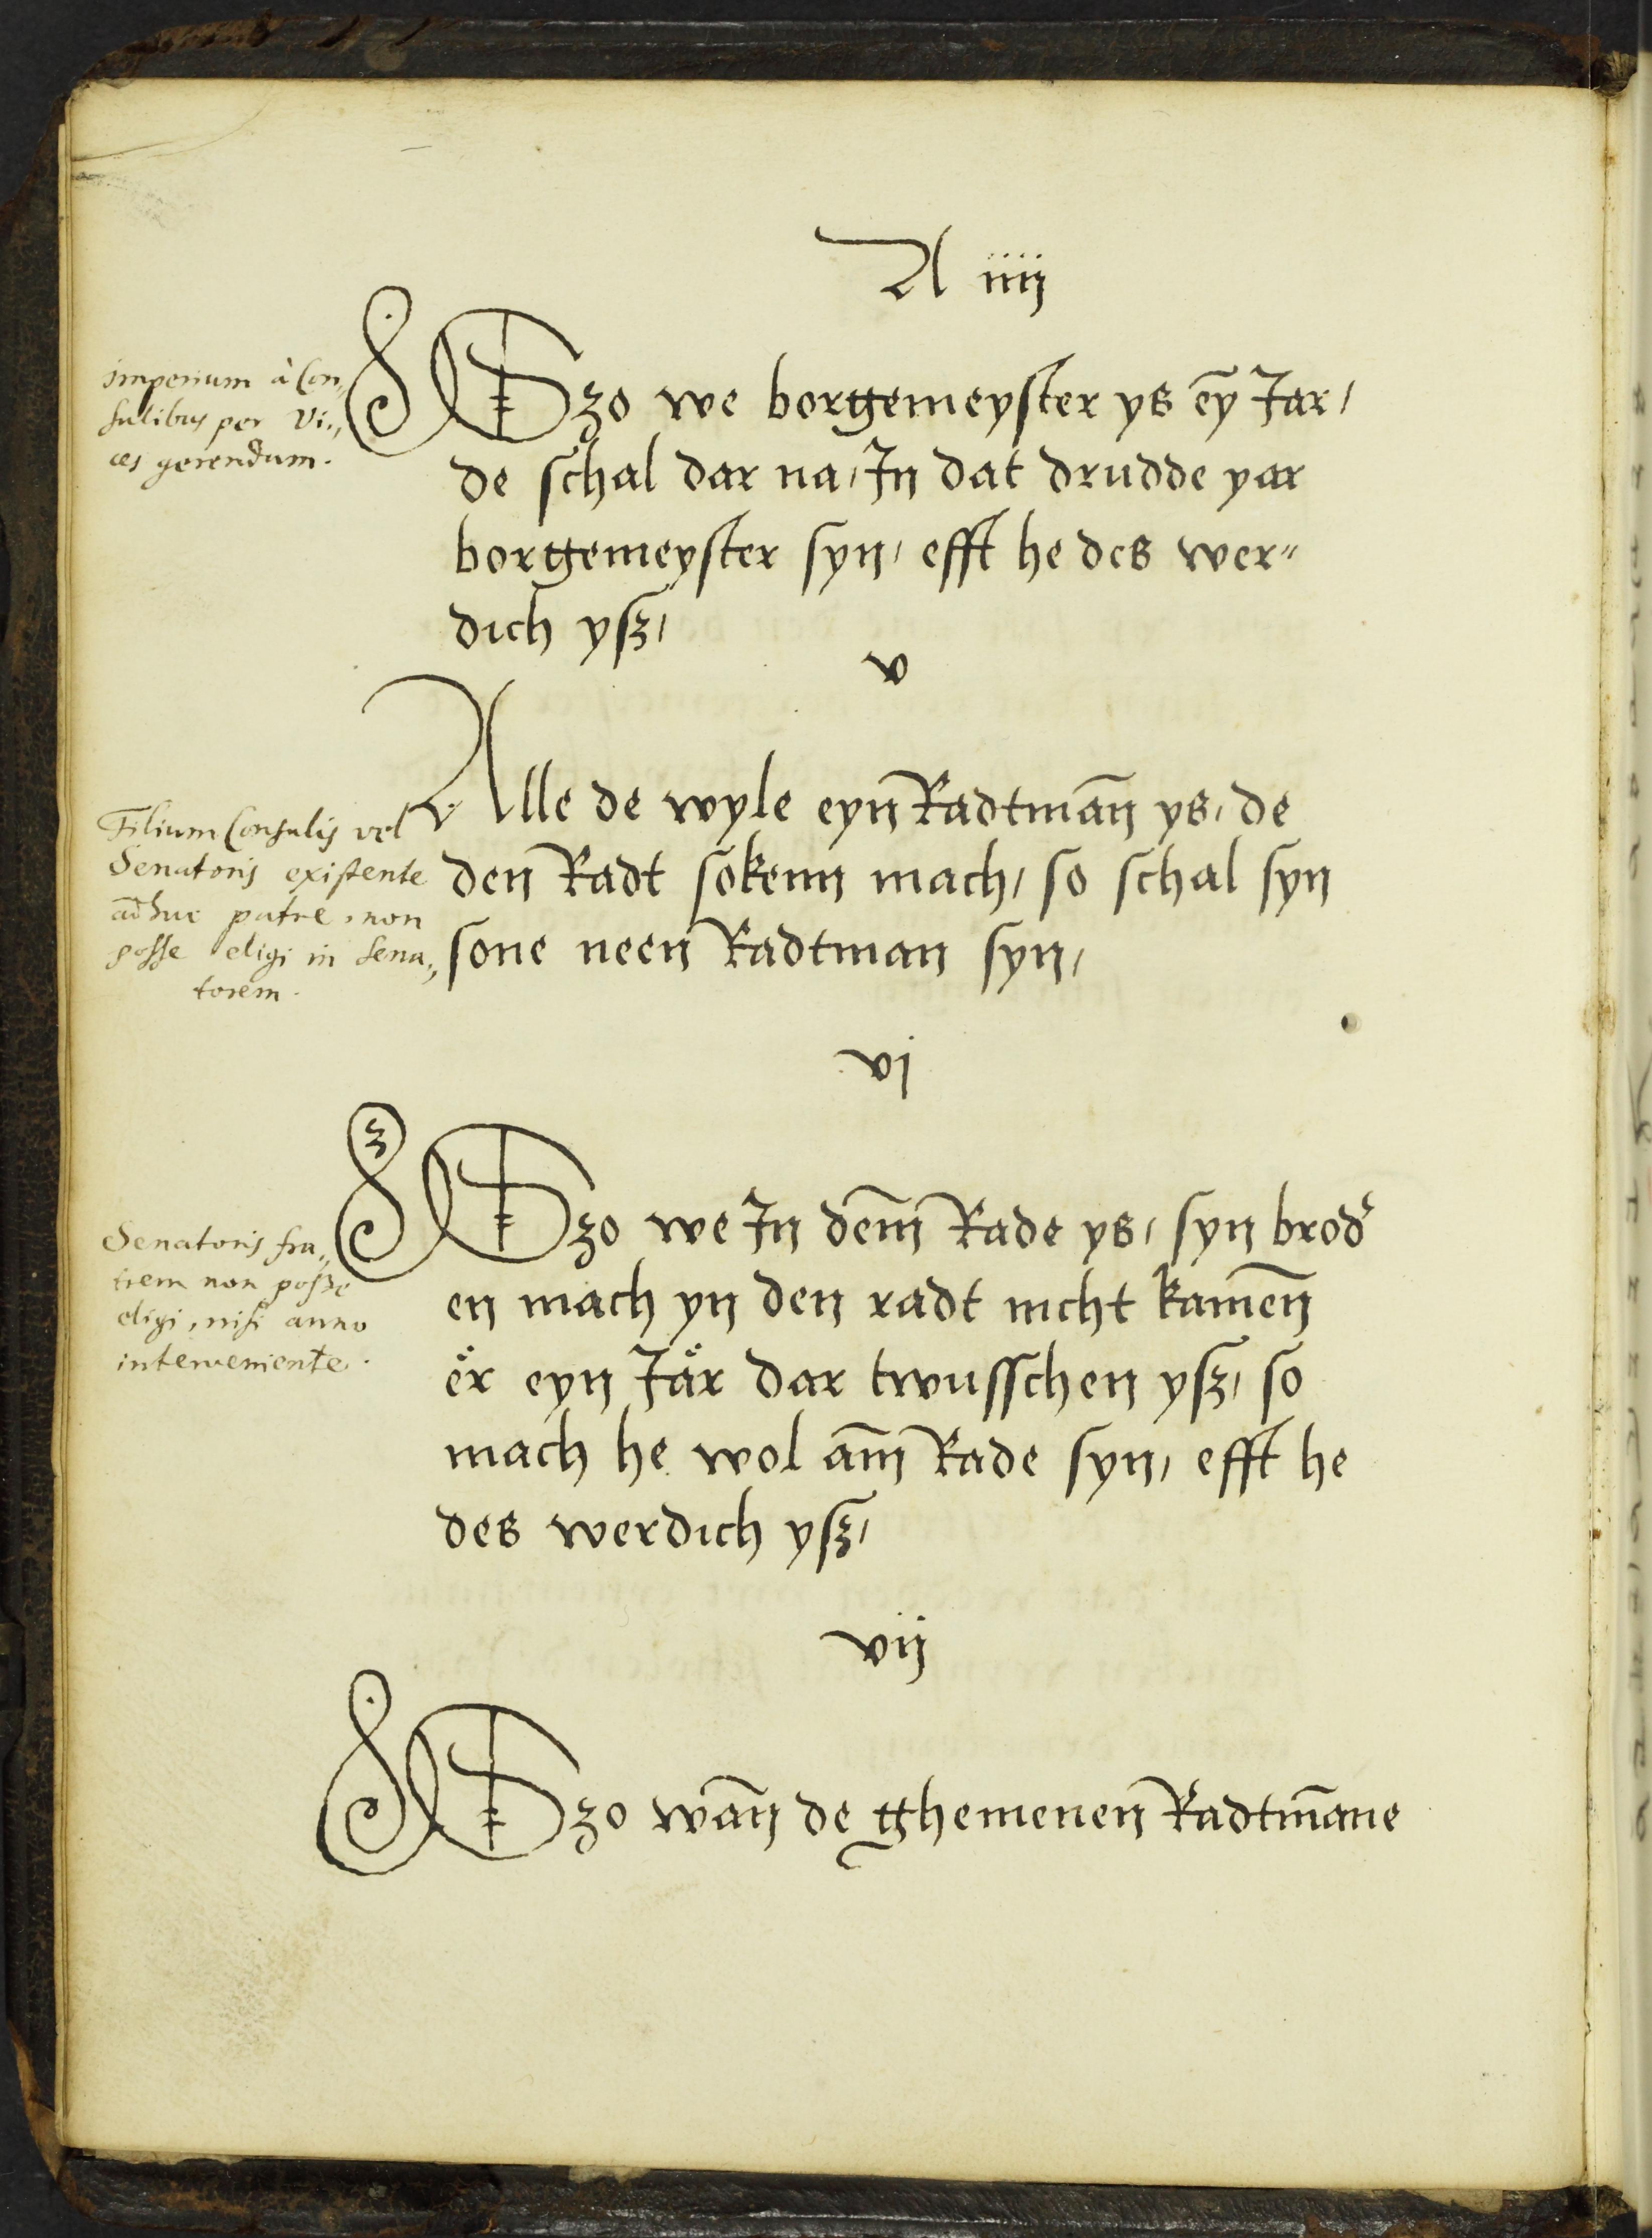 A iiij
Imperium à Con,,
sulibus per vi,,
ces gerendum.
Szo we borgemeyster ys eȳ Jar /
de schal dar na / Jn dat drudde yar
borgemeyster syn / efft he des wer"
dich ysz /
v
Filium Consulis vel
Senatoris existente
adhuc patre, non
posse eligi in Sena,,
torem.
Alle de wyle eyn̄ Radtman̄ ys / de
den̄ Radt sokenn mach / so schal syn
sone neen̄ Radtman syn /
vj
Senatoris fra,,
trem non posse
eligi, nisi anno
interveniente.
Szo we Jn dem̄ Rade ys / syn brod'
en mach yn den radt nicht kamen̄
er eyn Jar dar twusschen ysz / so
mach he wol am̄ Rade syn / efft he
des werdich ysz /
vij
Szo wan̄ de ghemenen̄ Radtm̄ane